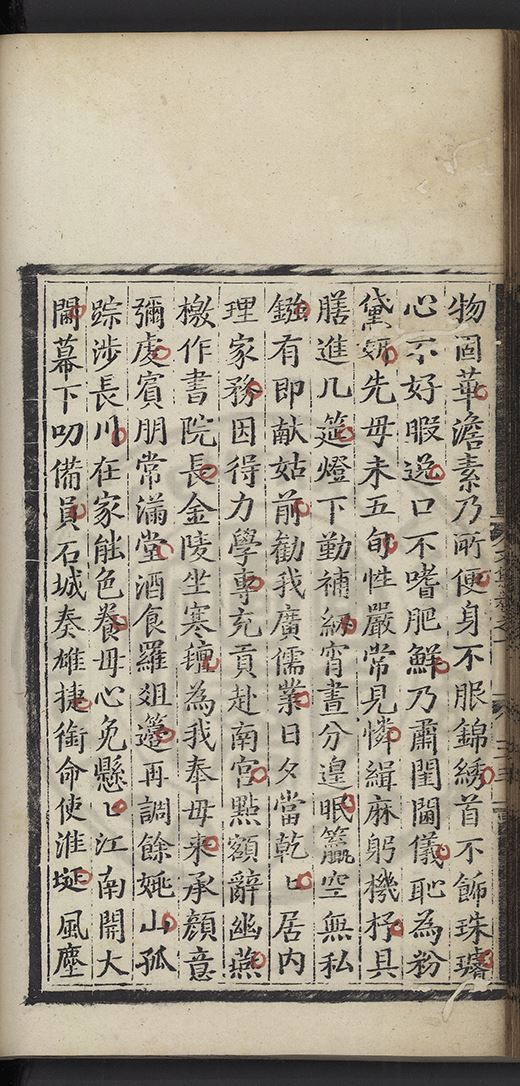 物固華澹素乃所便身不服錦綉首不飾珠璿
心不好暇逸口不嗜肥鮮乃肅閨閫儀恥為粉
黛妍先母未五旬性嚴常見憐緝麻躬機杼具
膳進几筵燈下勤補紉宵晝分遑眠籯空無私
鏹有即献姑前勸我廣儒業日夕當乾〻居内
理家務因得力學專充貢赴南宮點額辭幽燕
檄作書院長金陵坐寒氊為我奉母来承顔意
彌虔賓朋常滿堂酒食羅爼籩再調餘姚山孤
踪涉長川在家能色養母心免懸〻江南開大
閫幕下叨備員石城奏雄捷銜命使淮堧風塵